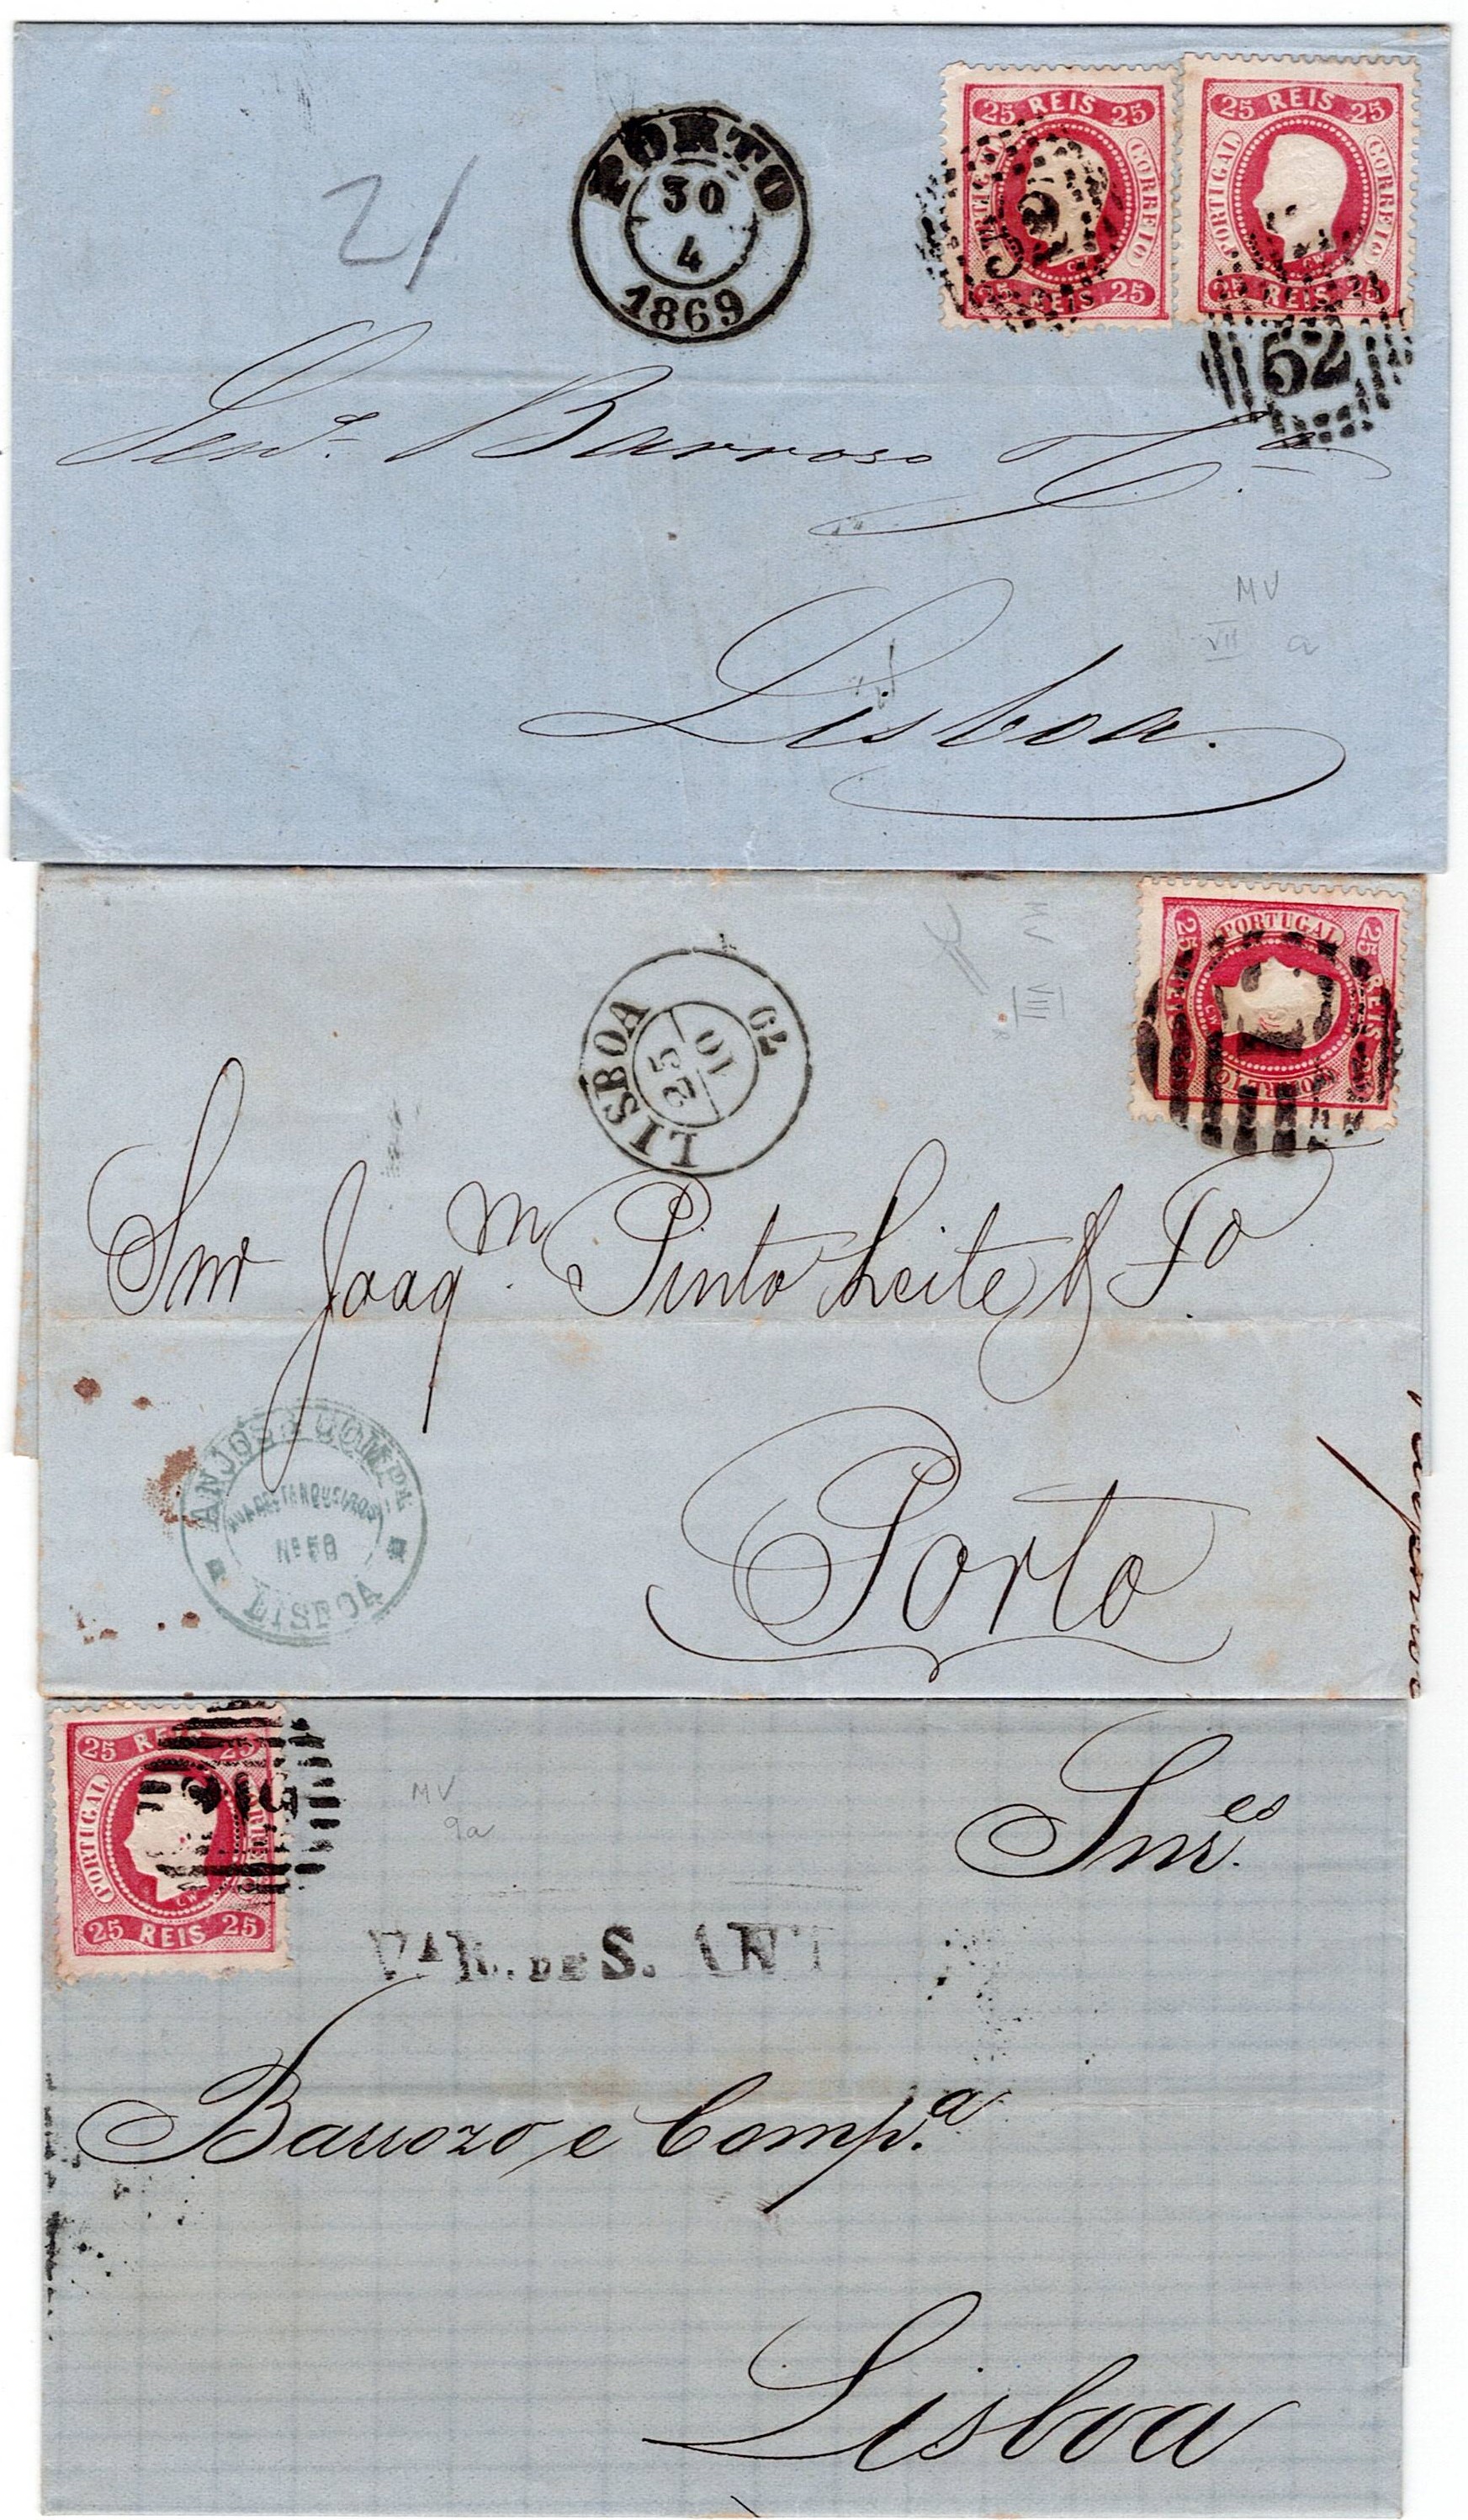 25 REIS 25
PORTUGAL
CORREIO
25 REIS 25
25 REIS 25
PORTUGAL
CORREIO
25 REIS 25
52
52
PORTO
30
4
1869
21
Barroso & C.ª
MV
VII a
Lisboa.
PORTUGAL
25 REIS
CORREIO
1
MV
VIII
LISBOA
25
10
79
Snr Joaq.m Pinto Leite & F.o
ANJOS & COMPA
RUA DOS FANQUEIROS
Nº 58
LISBOA
Porto
25 REIS 25
PORTUGAL
CORREIO
25 REIS 25
MV
9a
Snr.es
VAR. DE S. ANT
Barrozo e Comp.ª
Lisboa